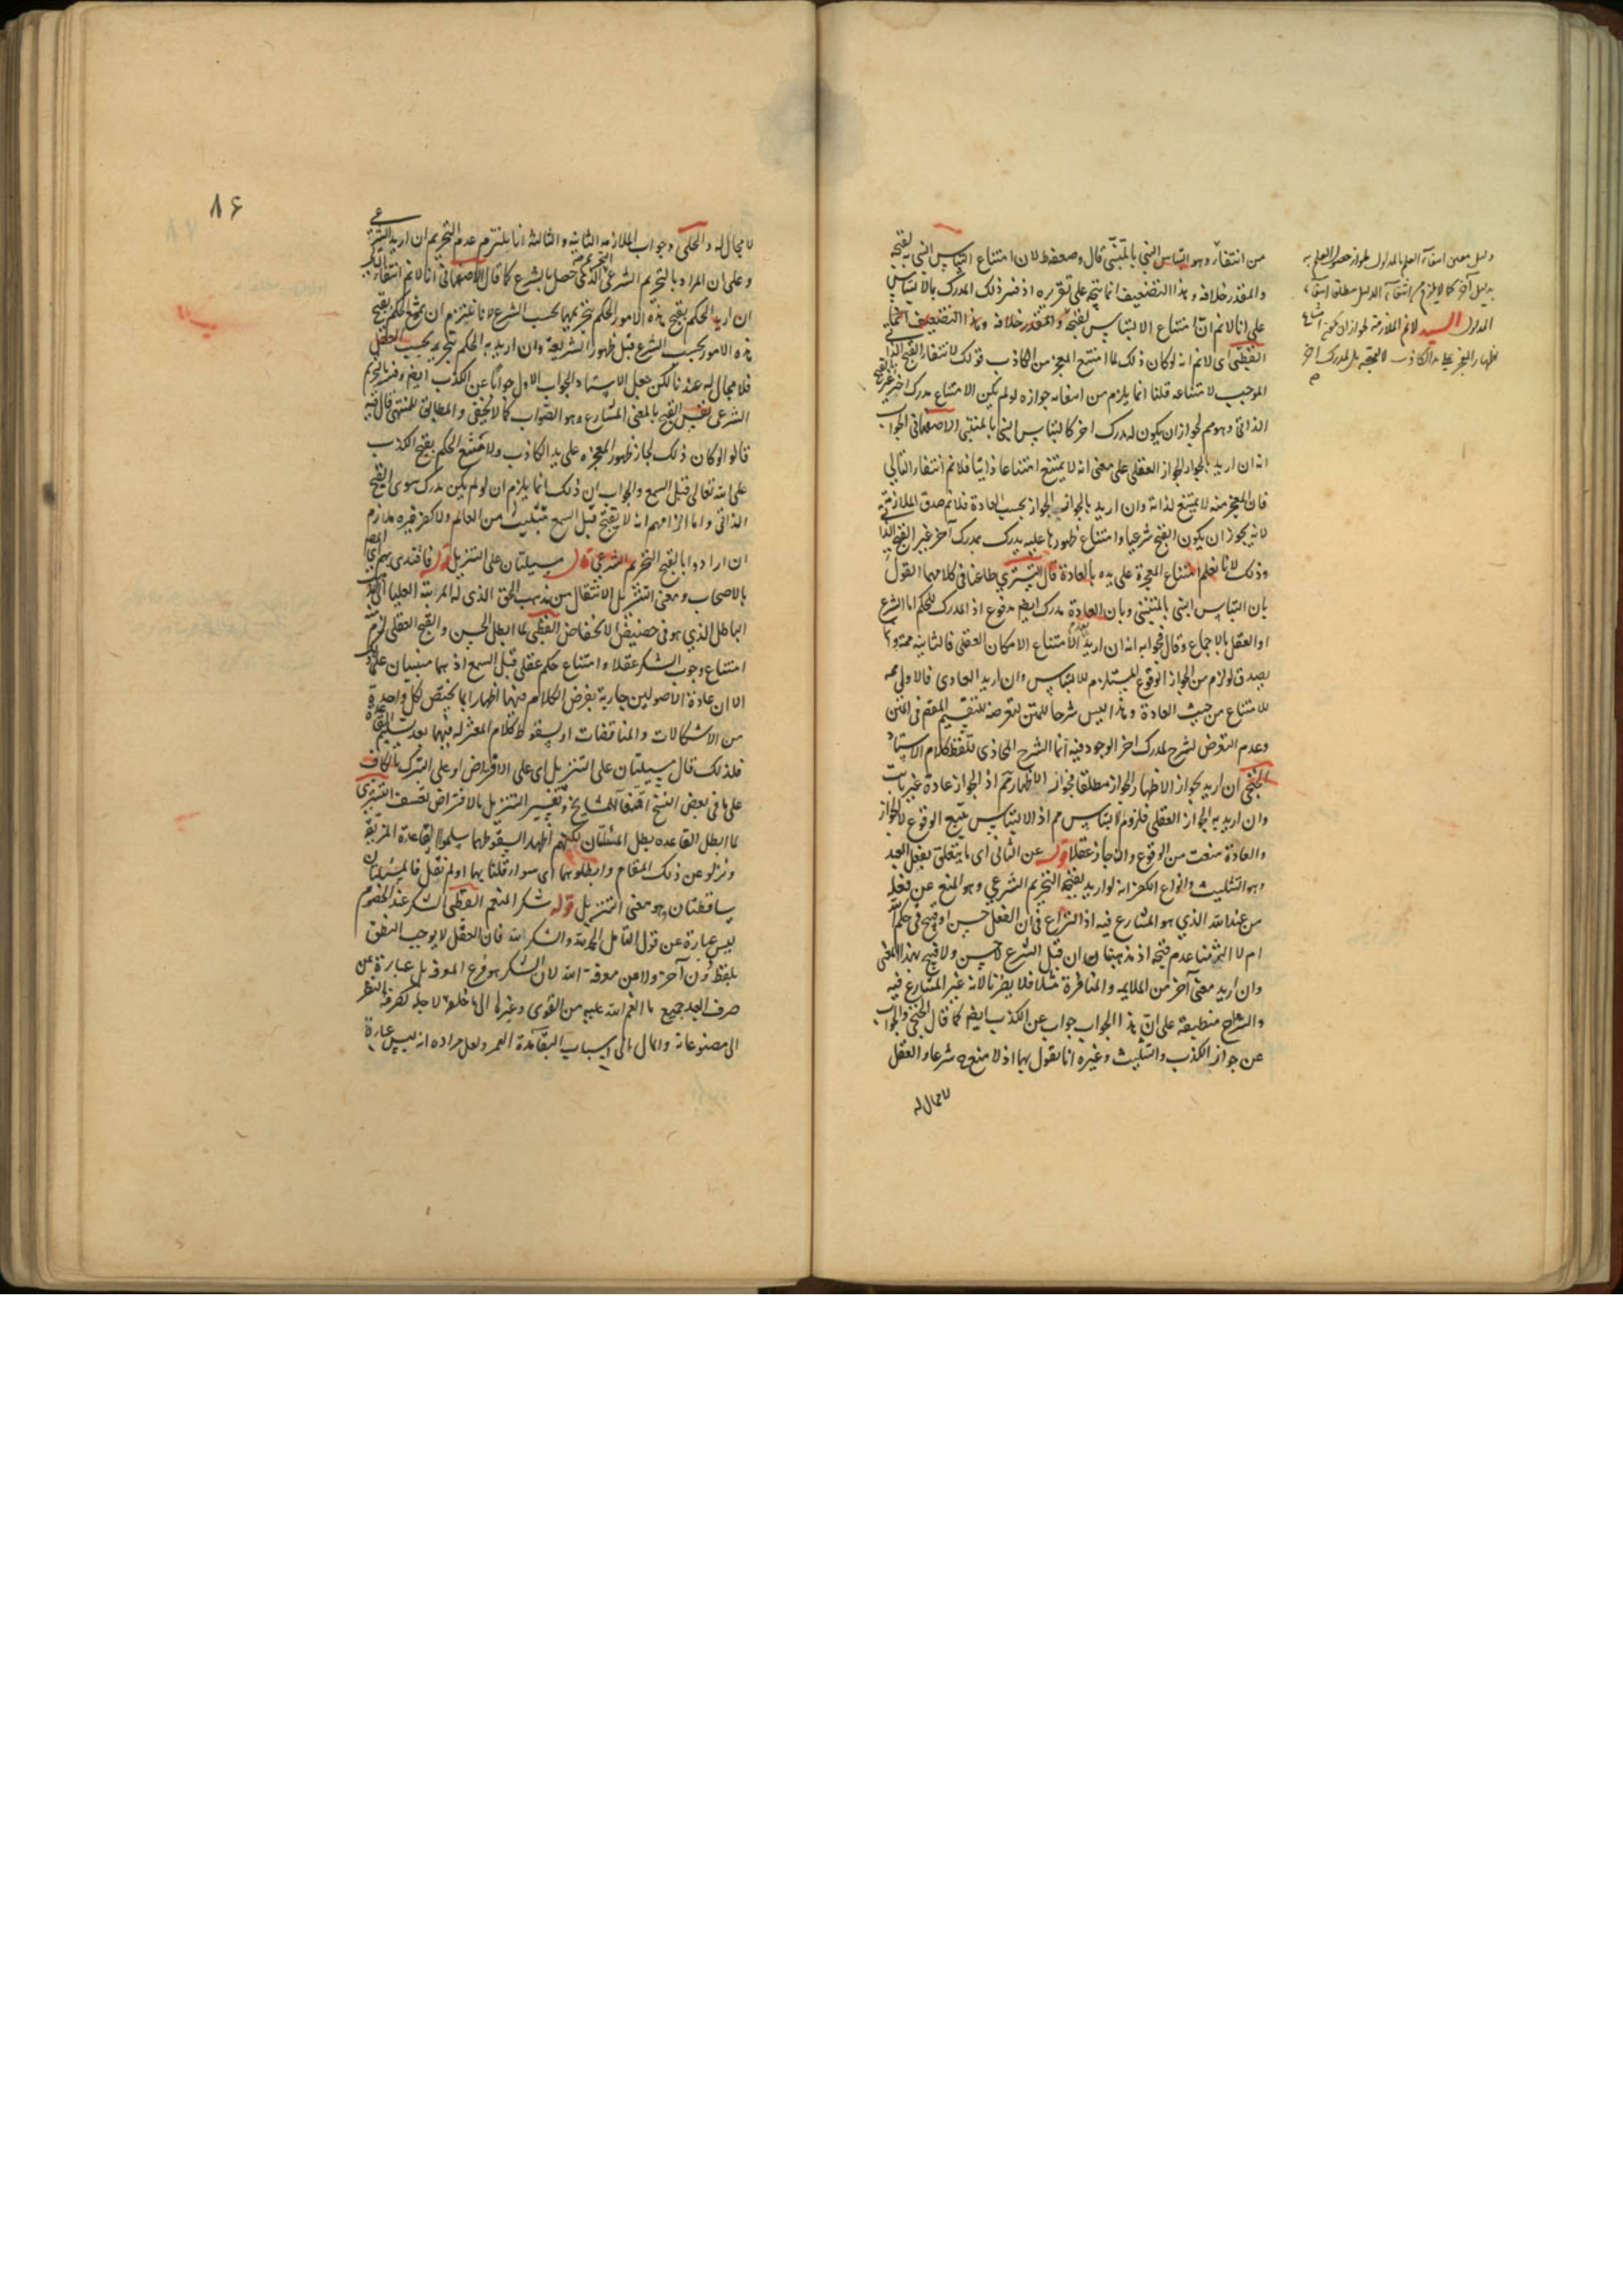 من انتفائه وهو التباس النبي بالمتنبي قال وضعفه ظ لان امتناع التباس النبي به لقبحه
والمقدر خلافه وهذا التضعيف انما يتجه على تقريره اذ فسر ذلك المدرك بالالتباس
على انا لانم ان امتناع الالتباس لقبحه والمقدر خلافه وهذا التضعيف
اى لانم انه لو كان ذلك لما امتنع المعجز من الكاذب قولك لانتفاء القبح الذاتي
الموجب لامتناعه قلنا انما يلزم من انتفائه جوازه لو لم يكن الامتناع مدرك اخر غير
الذاتي وهو مم لجواز ان يكون له مدرك اخر كالتباس النبي بالمتنبي الاصفهاني الجواب
انه ان اريد بالجواز الجواز العقلي على معنى انه لا يمتنع امتناعا ذاتيا فلانم انتفاء التالي
فان المعجز منه لا يمتنع لذاته وان اريد بالجواز الجواز بحسب العادة فلانم صدق الملازمة
لانه يجوز ان يكون القبح شرعيا وامتناع ظهورها عليه يدرك بمدرك آخر غير القبح
وذلك لانا نعلم امتناع المعجزة على يده بالعادة قال التستري طاعنا في كلامهما القول
بان التباس النبي بالمتنبي وبان العادة مدرك ايضا مدفوع اذ المدرك للحكم اما الشرع
او العقل بالاجماع وقال فجوابه انه ان اريد الامتناع الامكان العقلي فالثانية ممنوعة
يصدق لو لزم من الجواز الوقوع المستلزم للالتباس وان اريد العادي فالاولى
للامتناع من حيث العادة وهذا ليس شرحا للمتن لتعرضه للتقسيم في المتن
وعدم التعرض لشرح لمدرك اخر الموجود فيه انما الشرح المحاذي تلفظ كلام الاستاد
الخنجي ان اريد بجواز الاظهار الجواز مطلقا فجواز الاظهار مم اذ الجواز عادة غير ثابت
وان اريد به الجواز العقلي فلزوم الالتباس مم اذ الالتباس يتبع الوقوع لا الجواز
والعادة منعت من الوقوع وان جاز عقلا قوله عن الثاني اى ما يتعلق بفعل العبد
وهو التثليث وانواع الكفر انه لو اريد بقبحه التحريم الشرعي وهو المنع عن فعله
من عند الله الذي هو المتنازع فيه اذ النزاع في ان الفعل حسن او قبيح في حكم الله
ام لا التزمنا عدم قبحه اذ مذهبنا ان قبل الشرع لا حسن ولا قبح بهذا المعنى
وان اريد معنى آخر من الملايمه والمنافرة مثلا فلا يضرنا لانه غير المتنازع فيه
والشراح منطبقة على ان هذا الجواب جواب عن الكذب ايضا كما قال الخنجي والجواب
عن جواز الكذب والتثليث وغيره انا نقول بهما اذ لا منع شرعا والعقل
لا مجال له
بدليل آخر كما لا يلزم من انتفاء الدليل مطلقا انتفاء
المدلول السيد لانم الملازمة لجواز ان يكون امتناع
اظهار المعجز على يد الكاذب لا لقبحه بل لمدرك اخر
٨۶
لا مجال له والحلى وجواب الملازمه الثانيه والثالثه انا نلتزم عدم التحريم ان اريد الشرعي
وعلى ان المراد بالتحريم الشرعي الذي حصل بالشرع كما قال الاصفهاني انا لانم انتفاء
ان اريد الحكم بقبح هذه الامور الحكم بتحريمها بحسب الشرع لانا نلتزم ان يمتنع الحكم بقبح
هذه الامور بحسب الشرع قبل ظهور الشريعة وان اريد به الحكم بتحريمه بحسب العقل
فلا مجال له عندنا لكن جعل الاستاد الجواب الاول جوابا عن الكذب ايضا وفسر بالتحريم
الشرعي نفس القبح بالمعنى المتنازع وهو الصواب كما لا يخفى والمطابق للمنتهى قال فيه
قالوا لو كان ذلك لجاز ظهور المعجزه على يد الكاذب ولامتنع الحكم بقبح الكذب
على الله تعالى قبل السمع والجواب ان ذلك انما يلزم ان لو لم يكن مدرك سوى القبح
الذاتي واما الزامهم انه لا يقبح قبل السمع تثليث من العالم ولا كفر غيره ملتزم
ان ارادوا بالقبح التحريم الشرعي قال مسئلتان على التنزيل قوله فاقتدى بهم
بالاصحاب ومعنى التنزيل الانتقال من مذهب الحق الذي له المرتبة العليا الى
الباطل الذي هو في حضيض الانخفاض لما ابطل الحسن والقبح العقلي لزم
امتناع وجوب الشكر عقلا وامتناع حكم عقلي قبل السمع اذ هما مبنيان عليه
الا ان عادة الاصوليين جارية بفرض الكلام فيهما اظهارا لما يختص لكل واحدة
من الاشكالات والمناقضات او لسقوط كلام المعتزله فيهما بعد تسليم القاعدة
فلذلك قال مسئلتان على التنزيل اى على الافتراض او على الترك بالكاف
على ما في بعض النسخ وتفسير التنزيل بالافتراض تعسف التستري
لما ابطل القاعده بطل المسئلتان لكنهم اظهار السقوطهما سلموا القاعدة المزيفة
ونزلوا عن ذلك المقام وابطلوهما اى سواء قلنا بها او لم نقل فالمسئلتان
ساقطتان وهو معنى التنزيل قوله شكر المنعم الشكر عند الخصوم
ليس عبارة عن قول القائل الحمد لله والشكر لله فان العقل لا يوجب النطق
بلفظ دون آخر ولا من معرفة الله لان الشكر هو فرع المعرفة بل عبارة عن
صرف العبد جميع ما انعم الله عليه من القوى وغيرها الى ما خلق لاجله كصرفه النظر
الى مصنوعاته والمال الى اسباب البقاء مدة العمر ولعل مراده انه ليس عبارة